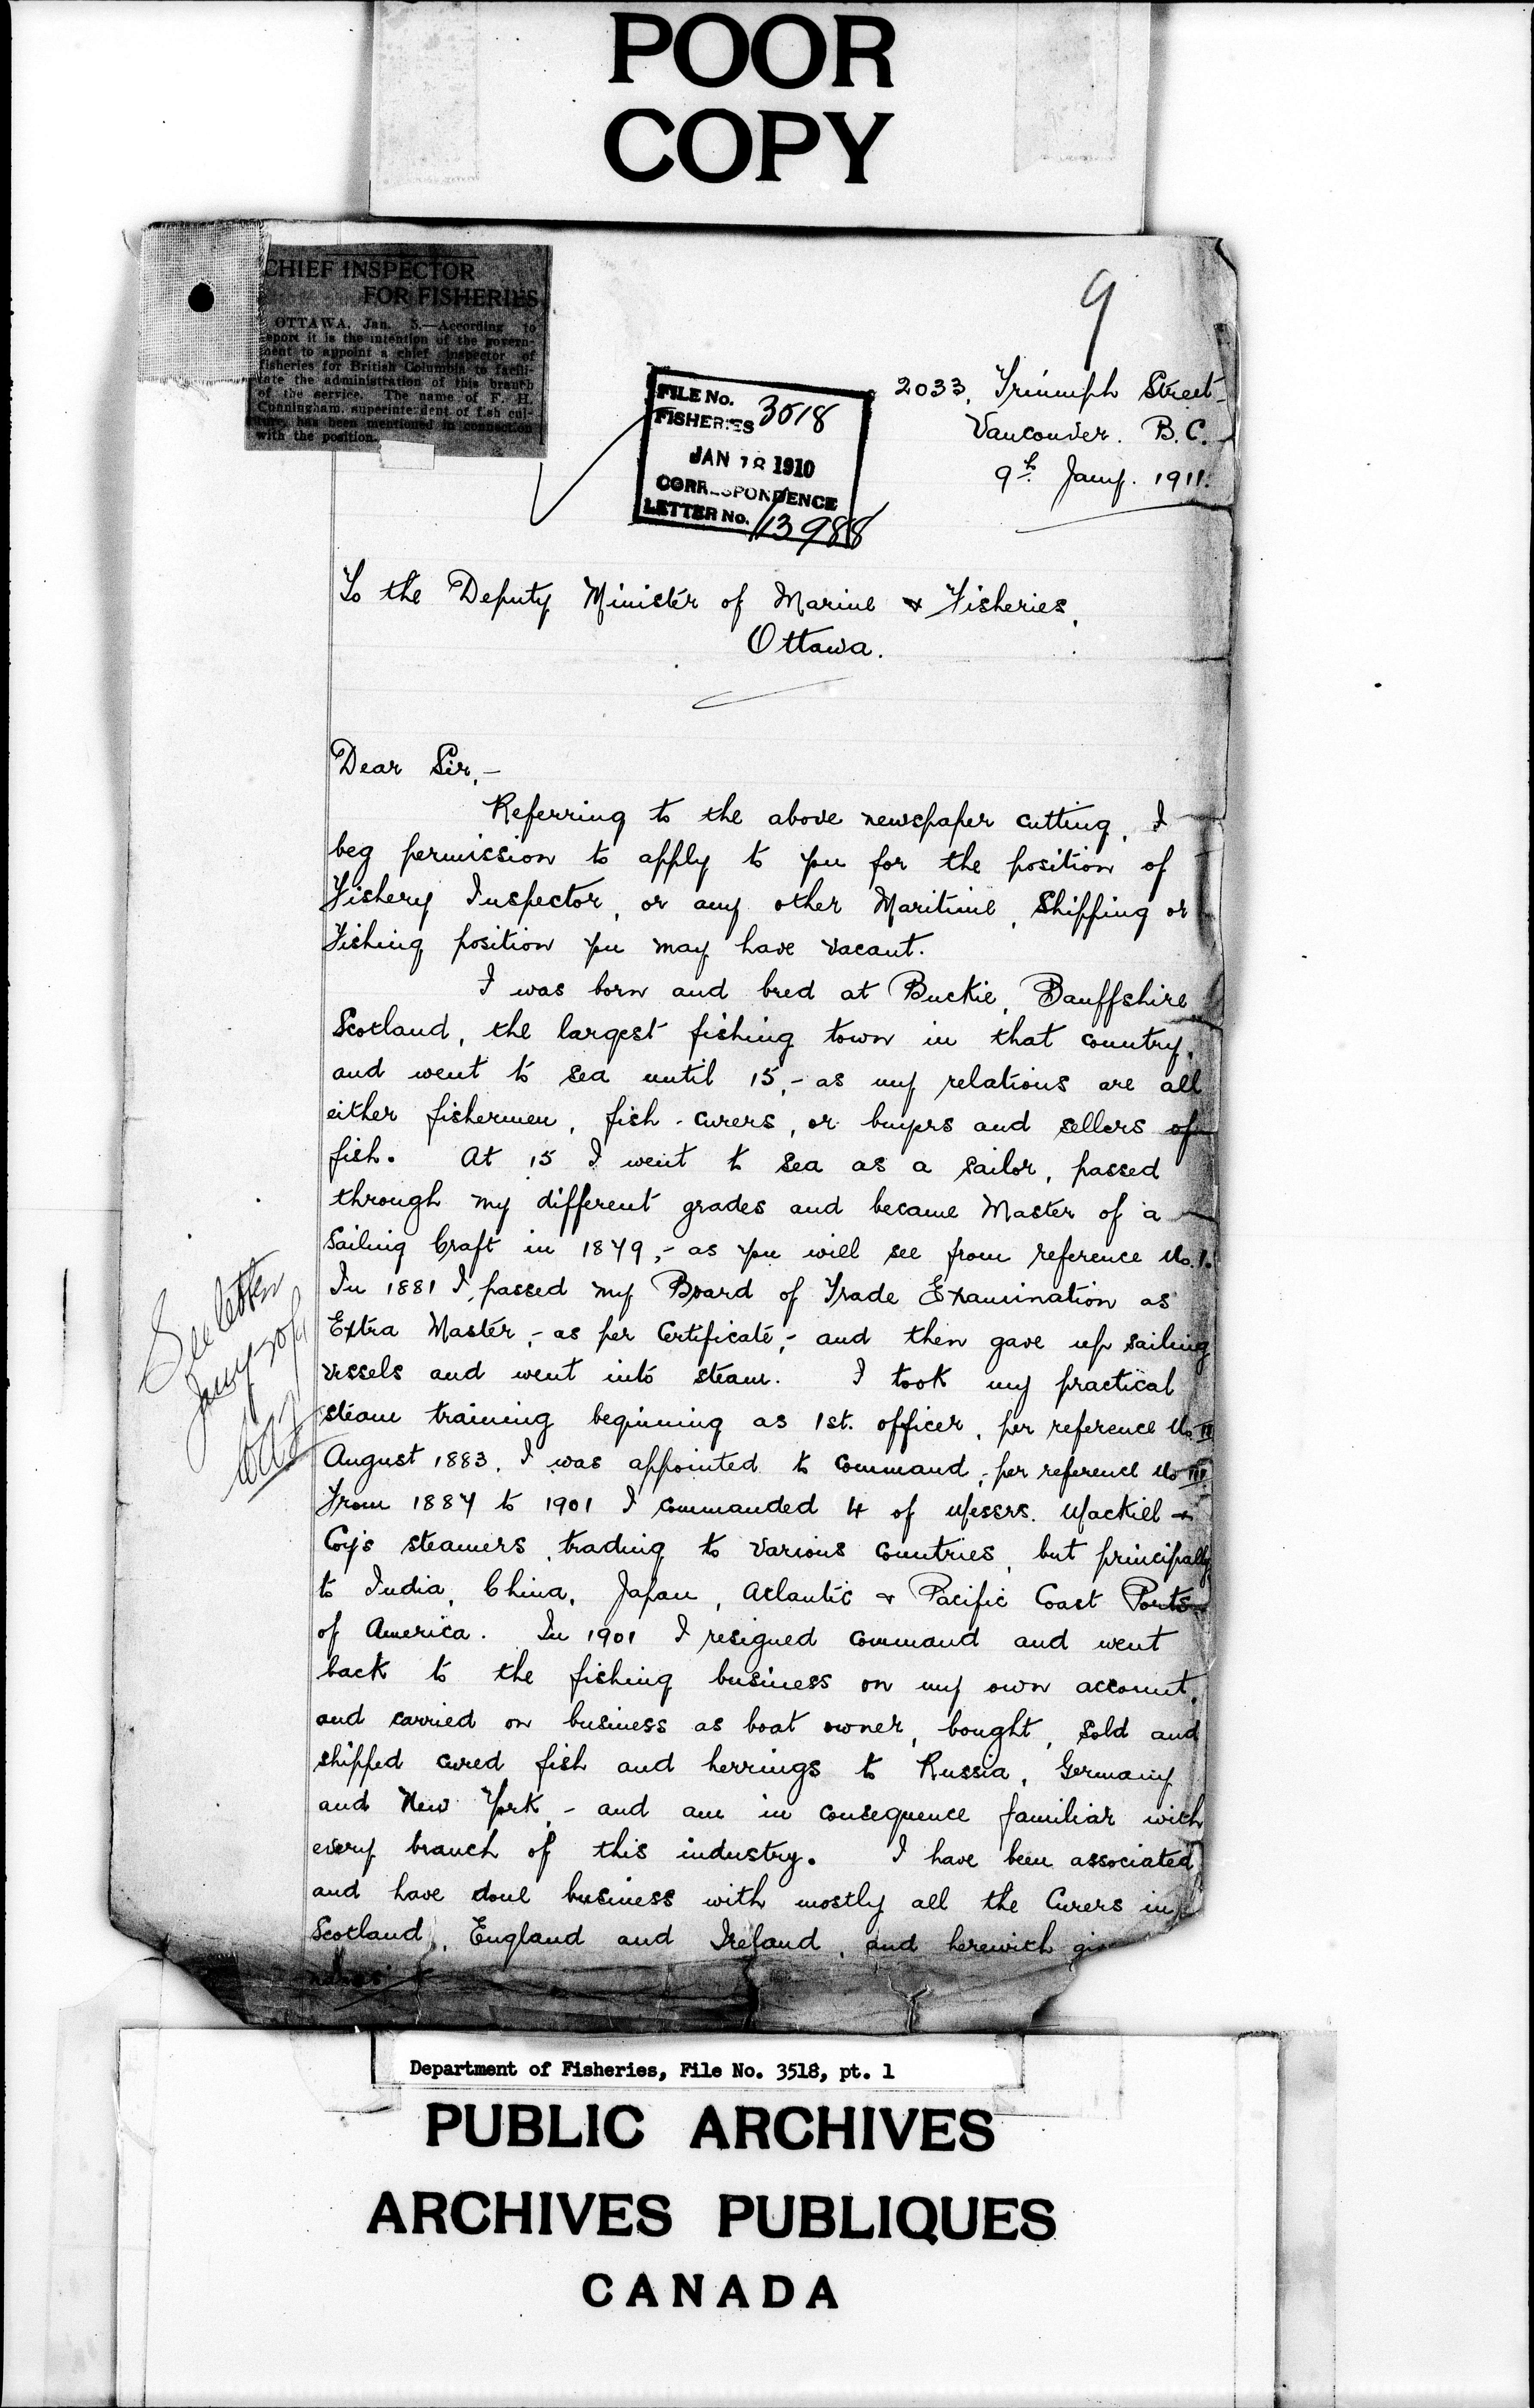 POOR
COPY
CHIEF INSPECTOR
FOR FISHERIES
OTTAWA, Jan. 5.—According to
report it is the intention of the govern-
ment to appoint a chief inspector of
fisheries for British Columbia to facili-
tate the administration of this branch
of the service. The name of F. H.
Cunningham, superintendent of fish cul-
ture, has been mentioned in connection
with the position.
9
FILE No.
FISHERIES 3518
JAN 18 1910
CORRESPONDENCE
LETTER No. 13988
2033, Triumph Street
Vancouver. B.C.
9th Jany. 1911.
To the Deputy Minister of Marine & Fisheries,
Ottawa.
Dear Sir,-
Referring to the above newspaper cutting, I
beg permission to apply to you for the position of
Fishery Inspector, or any other Maritime, Shipping or
Fishing position you may have vacant.
I was born and bred at Buckie, Banffshire
Scotland, the largest fishing town in that country,
and went to sea until 15,- as my relations are all
either fishermen, fish-curers, or buyers and sellers of
fish. At 15 I went to sea as a sailor, passed
through my different grades and became Master of a
Sailing Craft in 1879,- as you will see from reference No. I.
In 1881 I passed my Board of Trade Examination as
Extra Master,- as per Certificate,- and then gave up sailing
vessels and went into steam. I took my practical
steam training beginning as 1st. officer, per reference No. II
August 1883, I was appointed to command,- per reference No III.
From 1887 to 1901 I commanded 4 of Messrs. Mackill &
Coy's steamers, trading to various countries, but principally
to India, China, Japan, Atlantic & Pacific Coast Ports
of America. In 1901 I resigned command and went
back to the fishing business on my own account,
and carried on business as boat owner, bought, sold and
shipped cured fish and herrings to Russia, Germany
and New York,- and am in consequence familiar with
every branch of this industry. I have been associated
and have done business with mostly all the Curers in
Scotland, England and Ireland, and herewith
See letter
Jany
Department of Fisheries, File No. 3518, pt. 1
PUBLIC ARCHIVES
ARCHIVES PUBLIQUES
CANADA